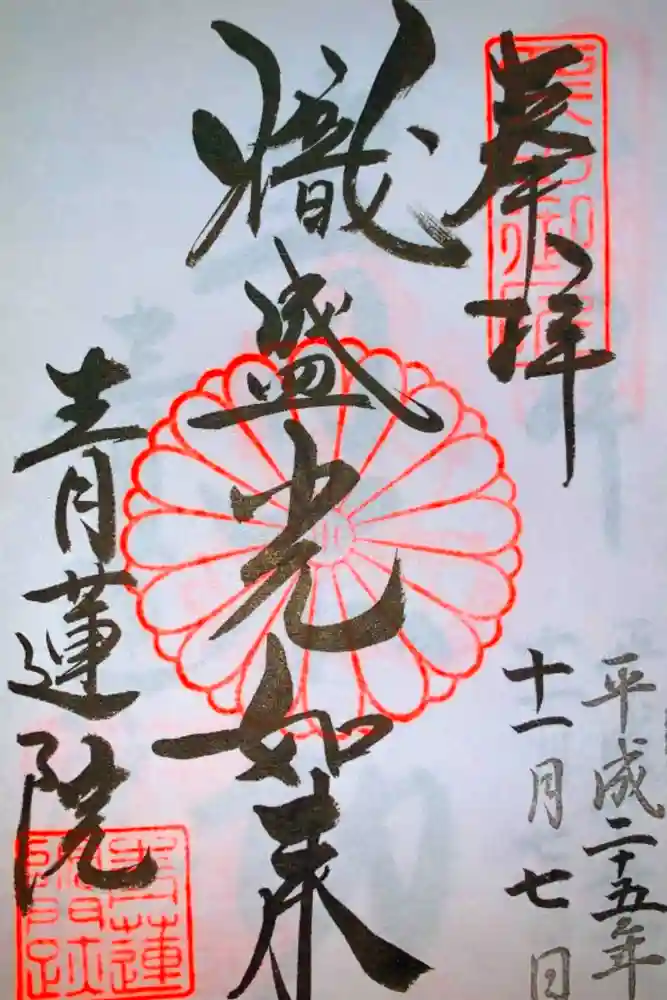 奉拝
平成二十五年
十一月七日
熾盛光如来
青蓮院
青蓮
院門跡